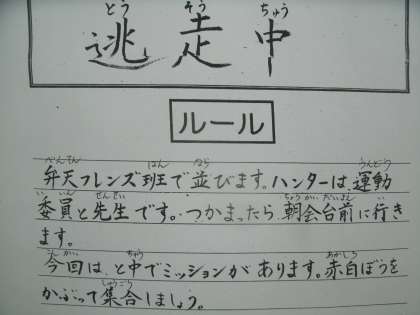 とう そう ちゅう
逃走中
ルール
べんてん はん なら うんどう
弁天フレンズ班で並びます。ハンターは、運動
いいん せんせい ちょうかいだいまえ い
委員と先生です。つかまったら、朝会台前に行き
ます。
こんかい ちゅう あかしろ
今回は、と中でミッションがあります。赤白ぼうを
しゅうごう
かぶって集合しましょう。